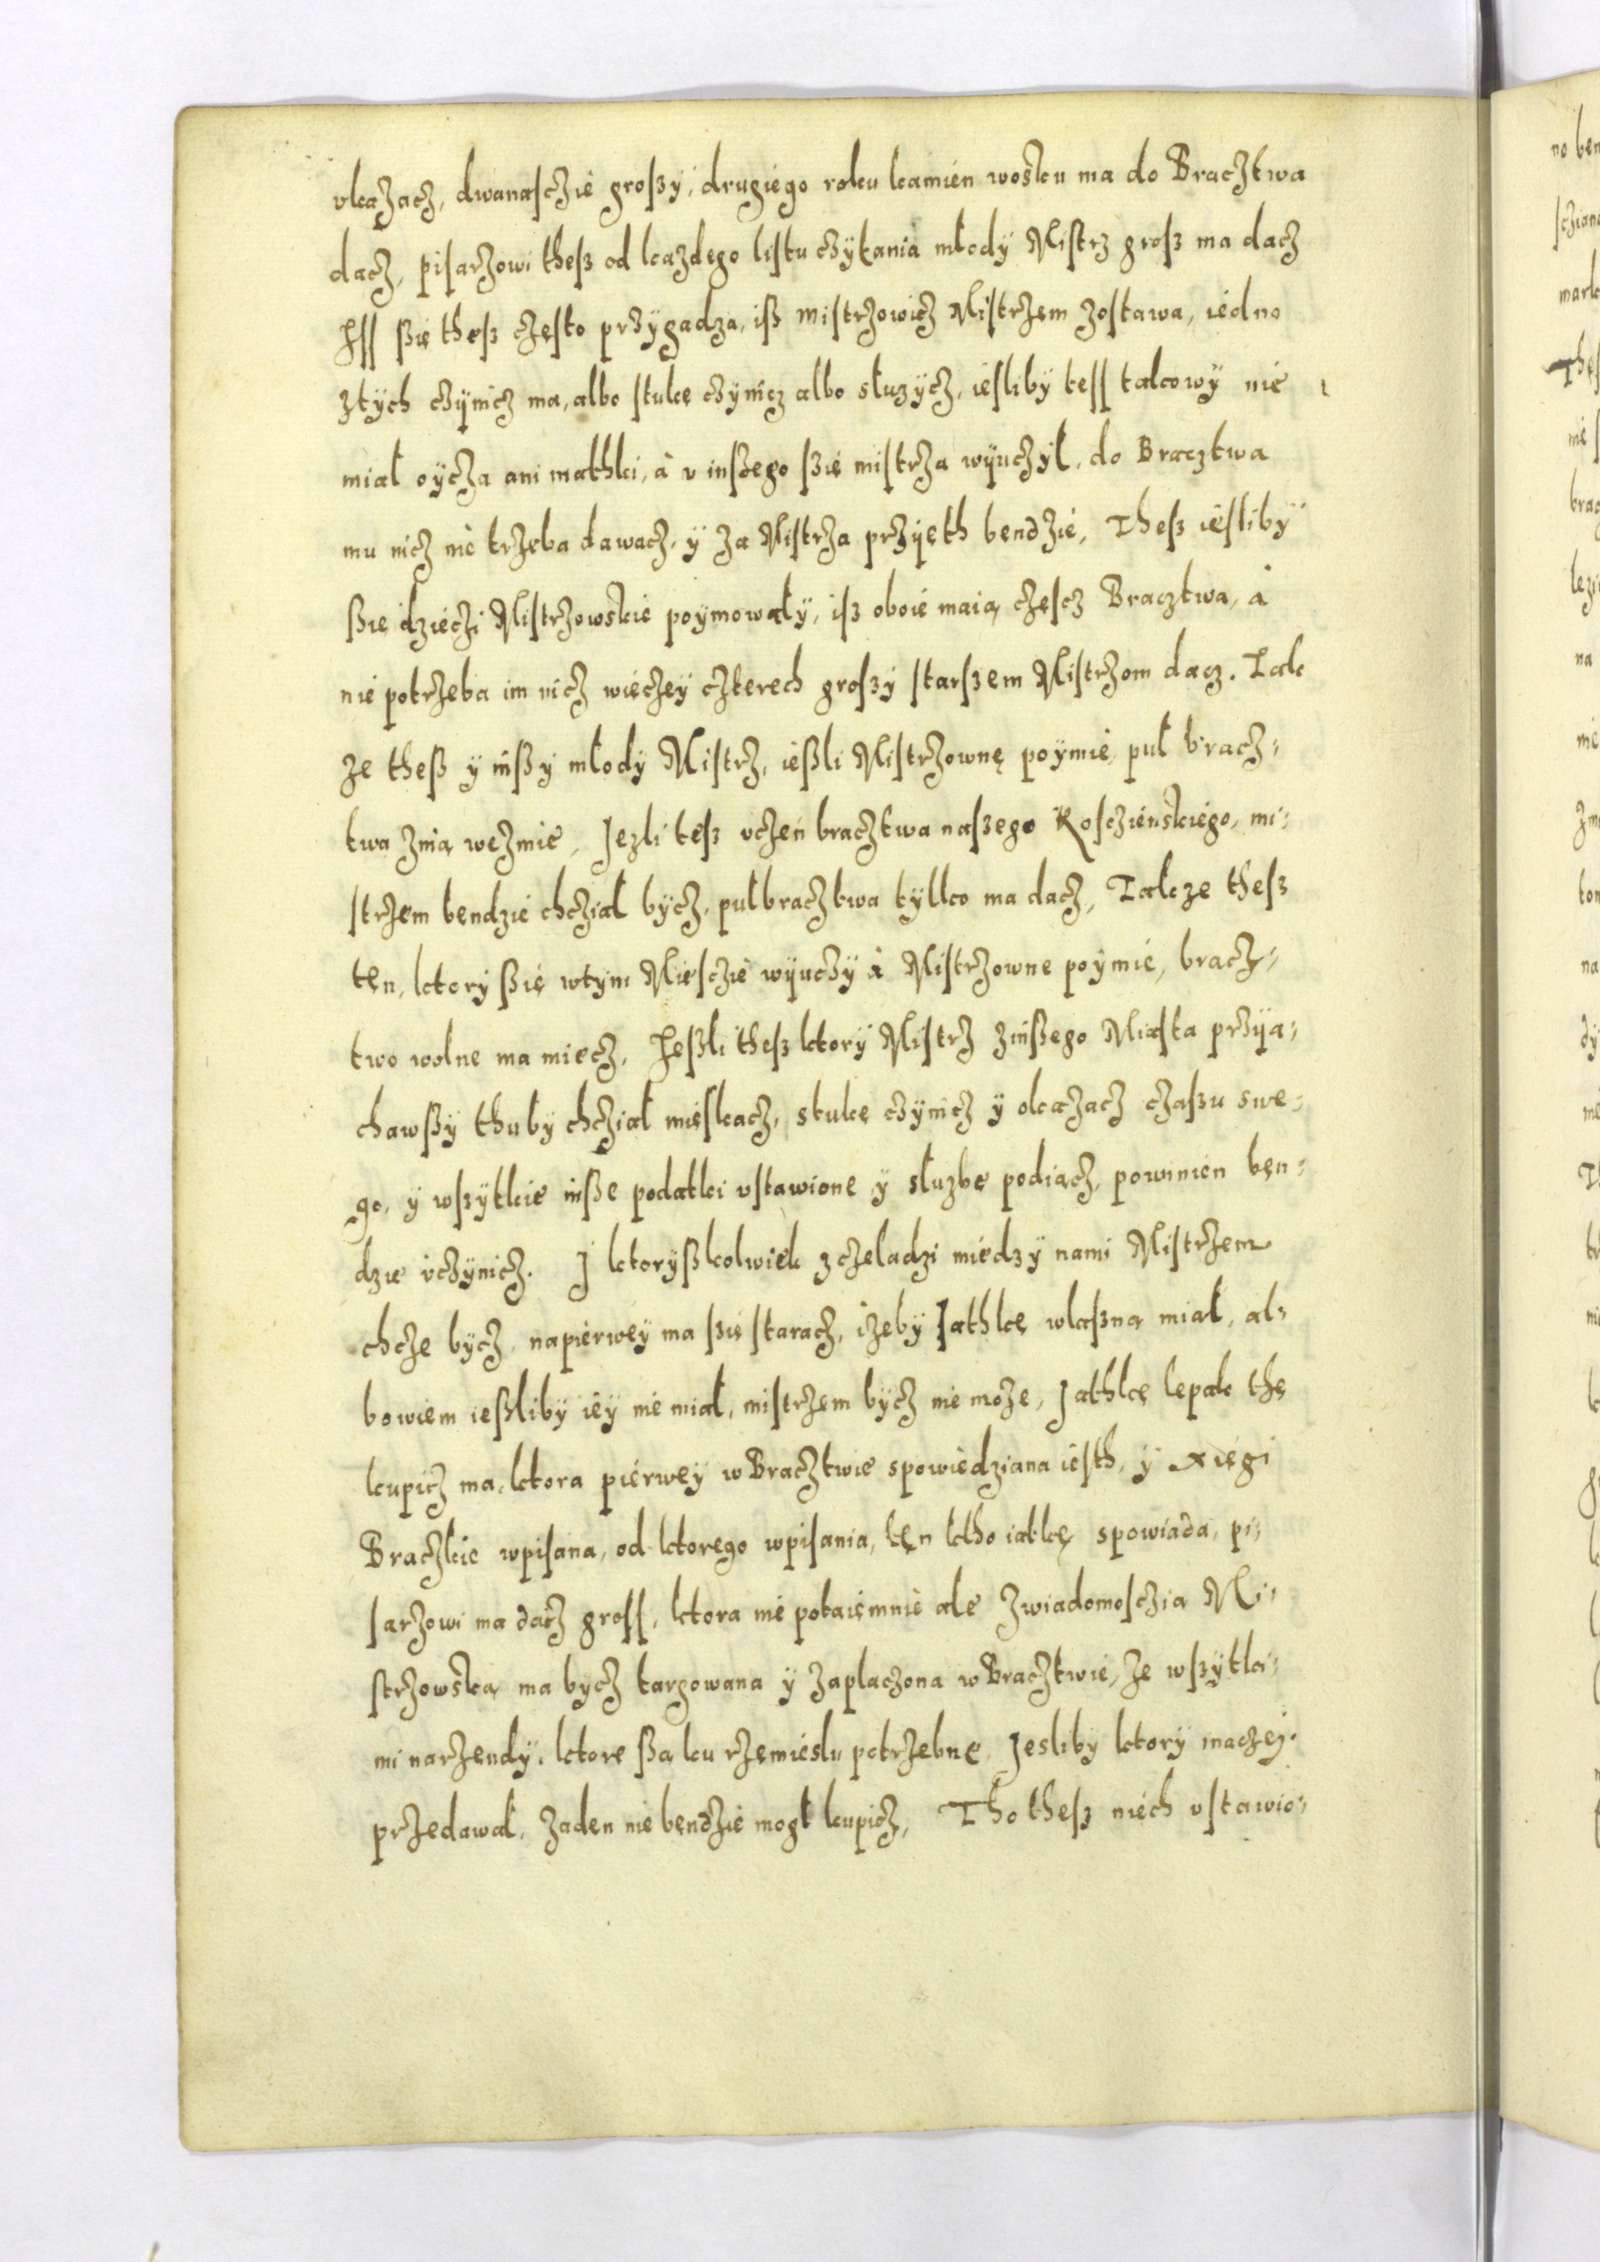 vkazacz, dwanasczie groszy, drugiego roku kamien wosku ma do Bracztwa
dacz, pisarzowi thesz od kazdego listu czytania młody Mistrz grosz ma dacz
Iss szie thesz często przygadza, isz mistrzowicz Mistrzem zostawa, iedno
z tych czynicz ma, albo stukę czynicz albo słuzycz, iesliby tess takowy nie
miał oycza ani mathki, a v inszego szie mistrza wyuczył, do Bracztwa
mu nicz nie trzeba dawacz, y za Mistrza przyięth bendzie, Thesz iesliby
szię dzieczi Mistrzowskie poymowały, isz oboie maią częscz Bracztwa, a
nie potrzeba im nicz wieczey czterech groszy starszem Mistrzom dacz. Tak
ze thesz y inszy młody Mistrz, ieszli Mistrzownę poymie, puł bracz-
twa z nią wezmie, Jezli tesz vczen bracztwa naszego Kosczienskiego, mi-
strzem bendzie chcział bycz, puł bracztwa tylko ma dacz, Takze thesz
ten, ktory szię w tym Miesczie wyuczy a Mistrzowne poymie, bracz-
two wolne ma miecz. Jeszli thesz ktory Mistrz z inszego Miasta przyia-
chawszy thu by chcział mieskacz, stukę czynicz y okazacz czaszu swe-
go, y wszytkie insze podatki vstawione y słuzbę podiącz, powinien ben-
dzie vczynicz. J ktoryszkolwiek z czeladzi miedzy nami Mistrzem
chcze bycz, napierwey ma szię staracz, izeby Jathkę własną miał, al-
bowiem ieszliby iey nie miał, mistrzem bycz nie moze, Jathkę lepak thę
kupicz ma, ktora pierwey w Bracztwie spowiedziana iesth, y xięgi
Braczkie wpisana, od ktorego wpisania, ten ktho iatkę spowiada, pi-
sarzowi ma dacz gross, ktora nie potaiemnie ale z wiadomosczią Mi-
strzowską ma bycz targowana y zapłaczona w Bracztwie, ze wszytki-
mi narzendy, ktore szą ku rzemiesłu potrzebne, Jesliby ktory inaczey
przedawał, zaden nie bendzie mogł kupicz, Tho thesz niech vstawio-